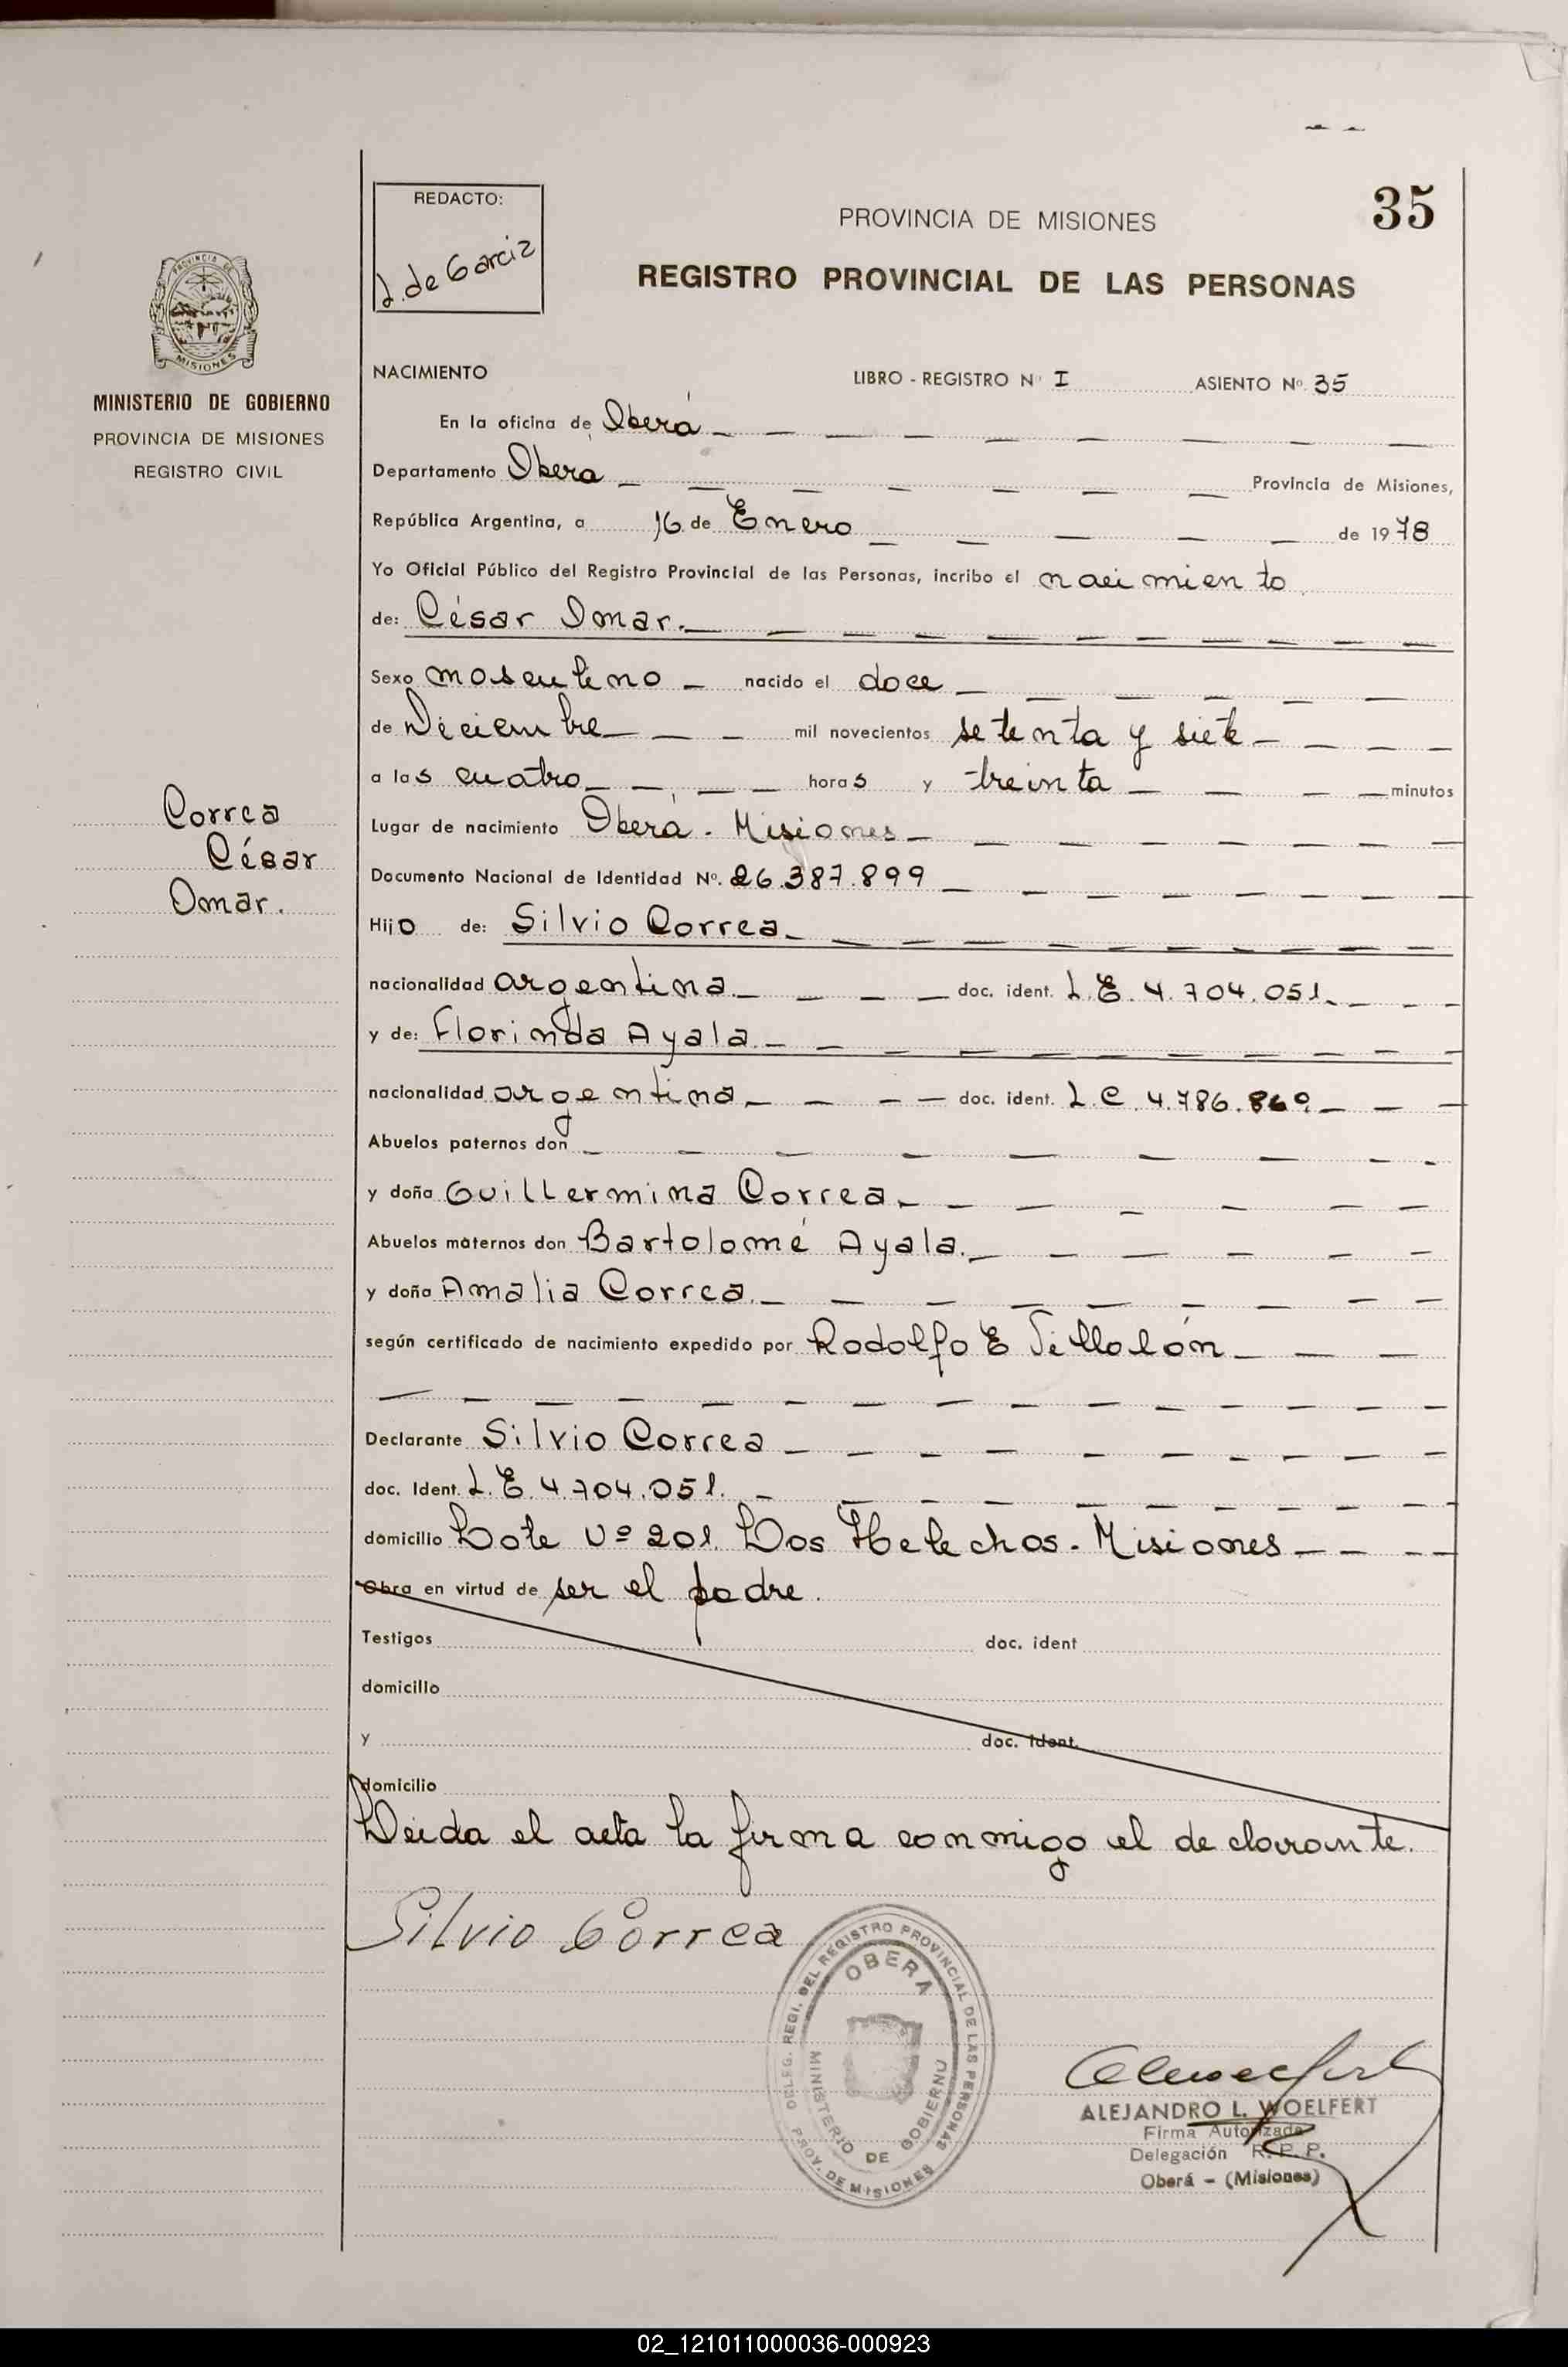 35
REDACTO:
L. de Garcia
PROVINCIA DE MISIONES
REGISTRO PROVINCIAL DE LAS PERSONAS
PROVINCIA DE
MISIONES
MINISTERIO DE GOBIERNO
PROVINCIA DE MISIONES
REGISTRO CIVIL
Correa
César
Omar.
NACIMIENTO LIBRO - REGISTRO Nº I ASIENTO Nº 35
En la oficina de Oberá
Departamento Oberá Provincia de Misiones,
República Argentina, a 16 de Enero de 1978
Yo Oficial Público del Registro Provincial de las Personas, incribo el nacimiento
de: César Omar.
Sexo masculino nacido el doce
de Diciembre mil novecientos setenta y siete
a las cuatro horas y treinta minutos
Lugar de nacimiento Oberá - Misiones
Documento Nacional de Identidad Nº. 26.387.899
Hijo de: Silvio Correa
nacionalidad argentina doc. ident. L.E. 4.704.051
y de: Florinda Ayala
nacionalidad argentina doc. ident. L.C. 4.786.
Abuelos paternos don
y doña Guillermina Correa
Abuelos maternos don Bartolomé Ayala.
y doña Amalia Correa.
según certificado de nacimiento expedido por Rodolfo E
Declarante Silvio Correa
doc. Ident. L.E. 4.704.051.
domicilio Lote Nº 201. Dos Helechos - Misiones
Obra en virtud de ser el padre.
Testigos doc. ident
domicilio
y doc. ident.
domicilio
Leida el acta la firma conmigo el declarante.
Silvio Correa
DELEG. REGI. DEL REGISTRO PROVINCIAL DE LAS PERSONAS
OBERA
MINISTERIO DE GOBIERNO
PROV. DE MISIONES
ALEJANDRO L. WOELFERT
Firma Autorizada
Delegación R. P. P.
Oberá - (Misiones)
02_121011000036-000923